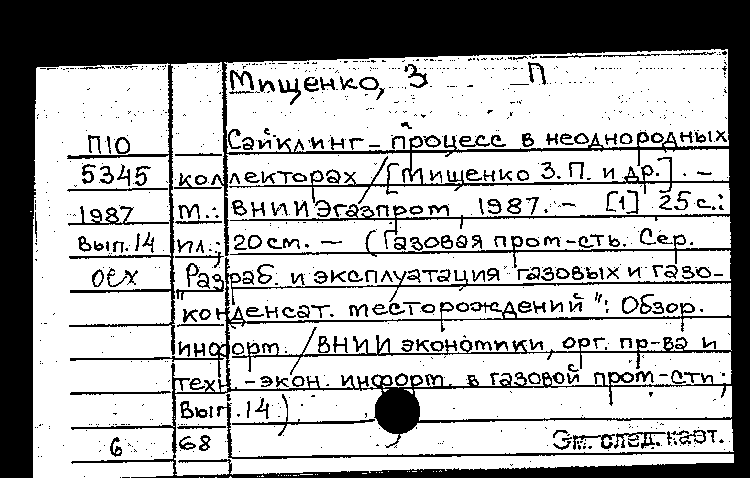 Мищенко, З П
П10 Сайклинг-процесс в неоднородных
5345 коллекторах / [Мищенко З.П. и др.]. –
1987 М.: ВНИИЭгазпром, 1987. – [1] 25 с.:
Вып.14 ил.; 20 см. – (Газовая пром-сть. Сер.
осх "Разраб. и эксплуатация газовых и газо-
конденсат. месторождений": Обзор.
информ. / ВНИИ экономики, орг. пр-ва и
техн.-экон. информ. в газовой пром-сти;
Вып.14)
6 68 См. след. карт.